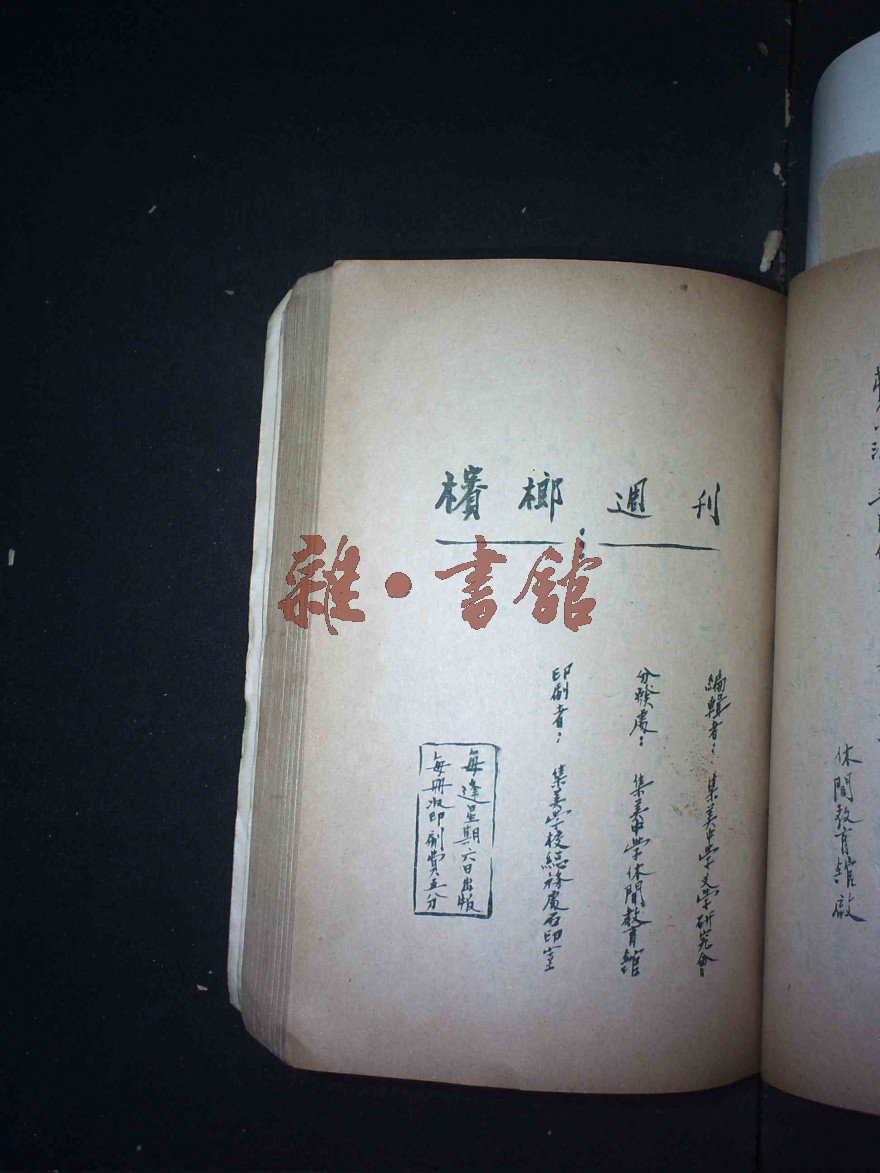 檳榔週刊
編輯者：集美中學文學研究會
分發處：集美中學休閒教育館
印刷者：集美學校總務處石印室
每逢星期六日出版
每冊收印刷費五分
雜·書館
休閒教育館啟